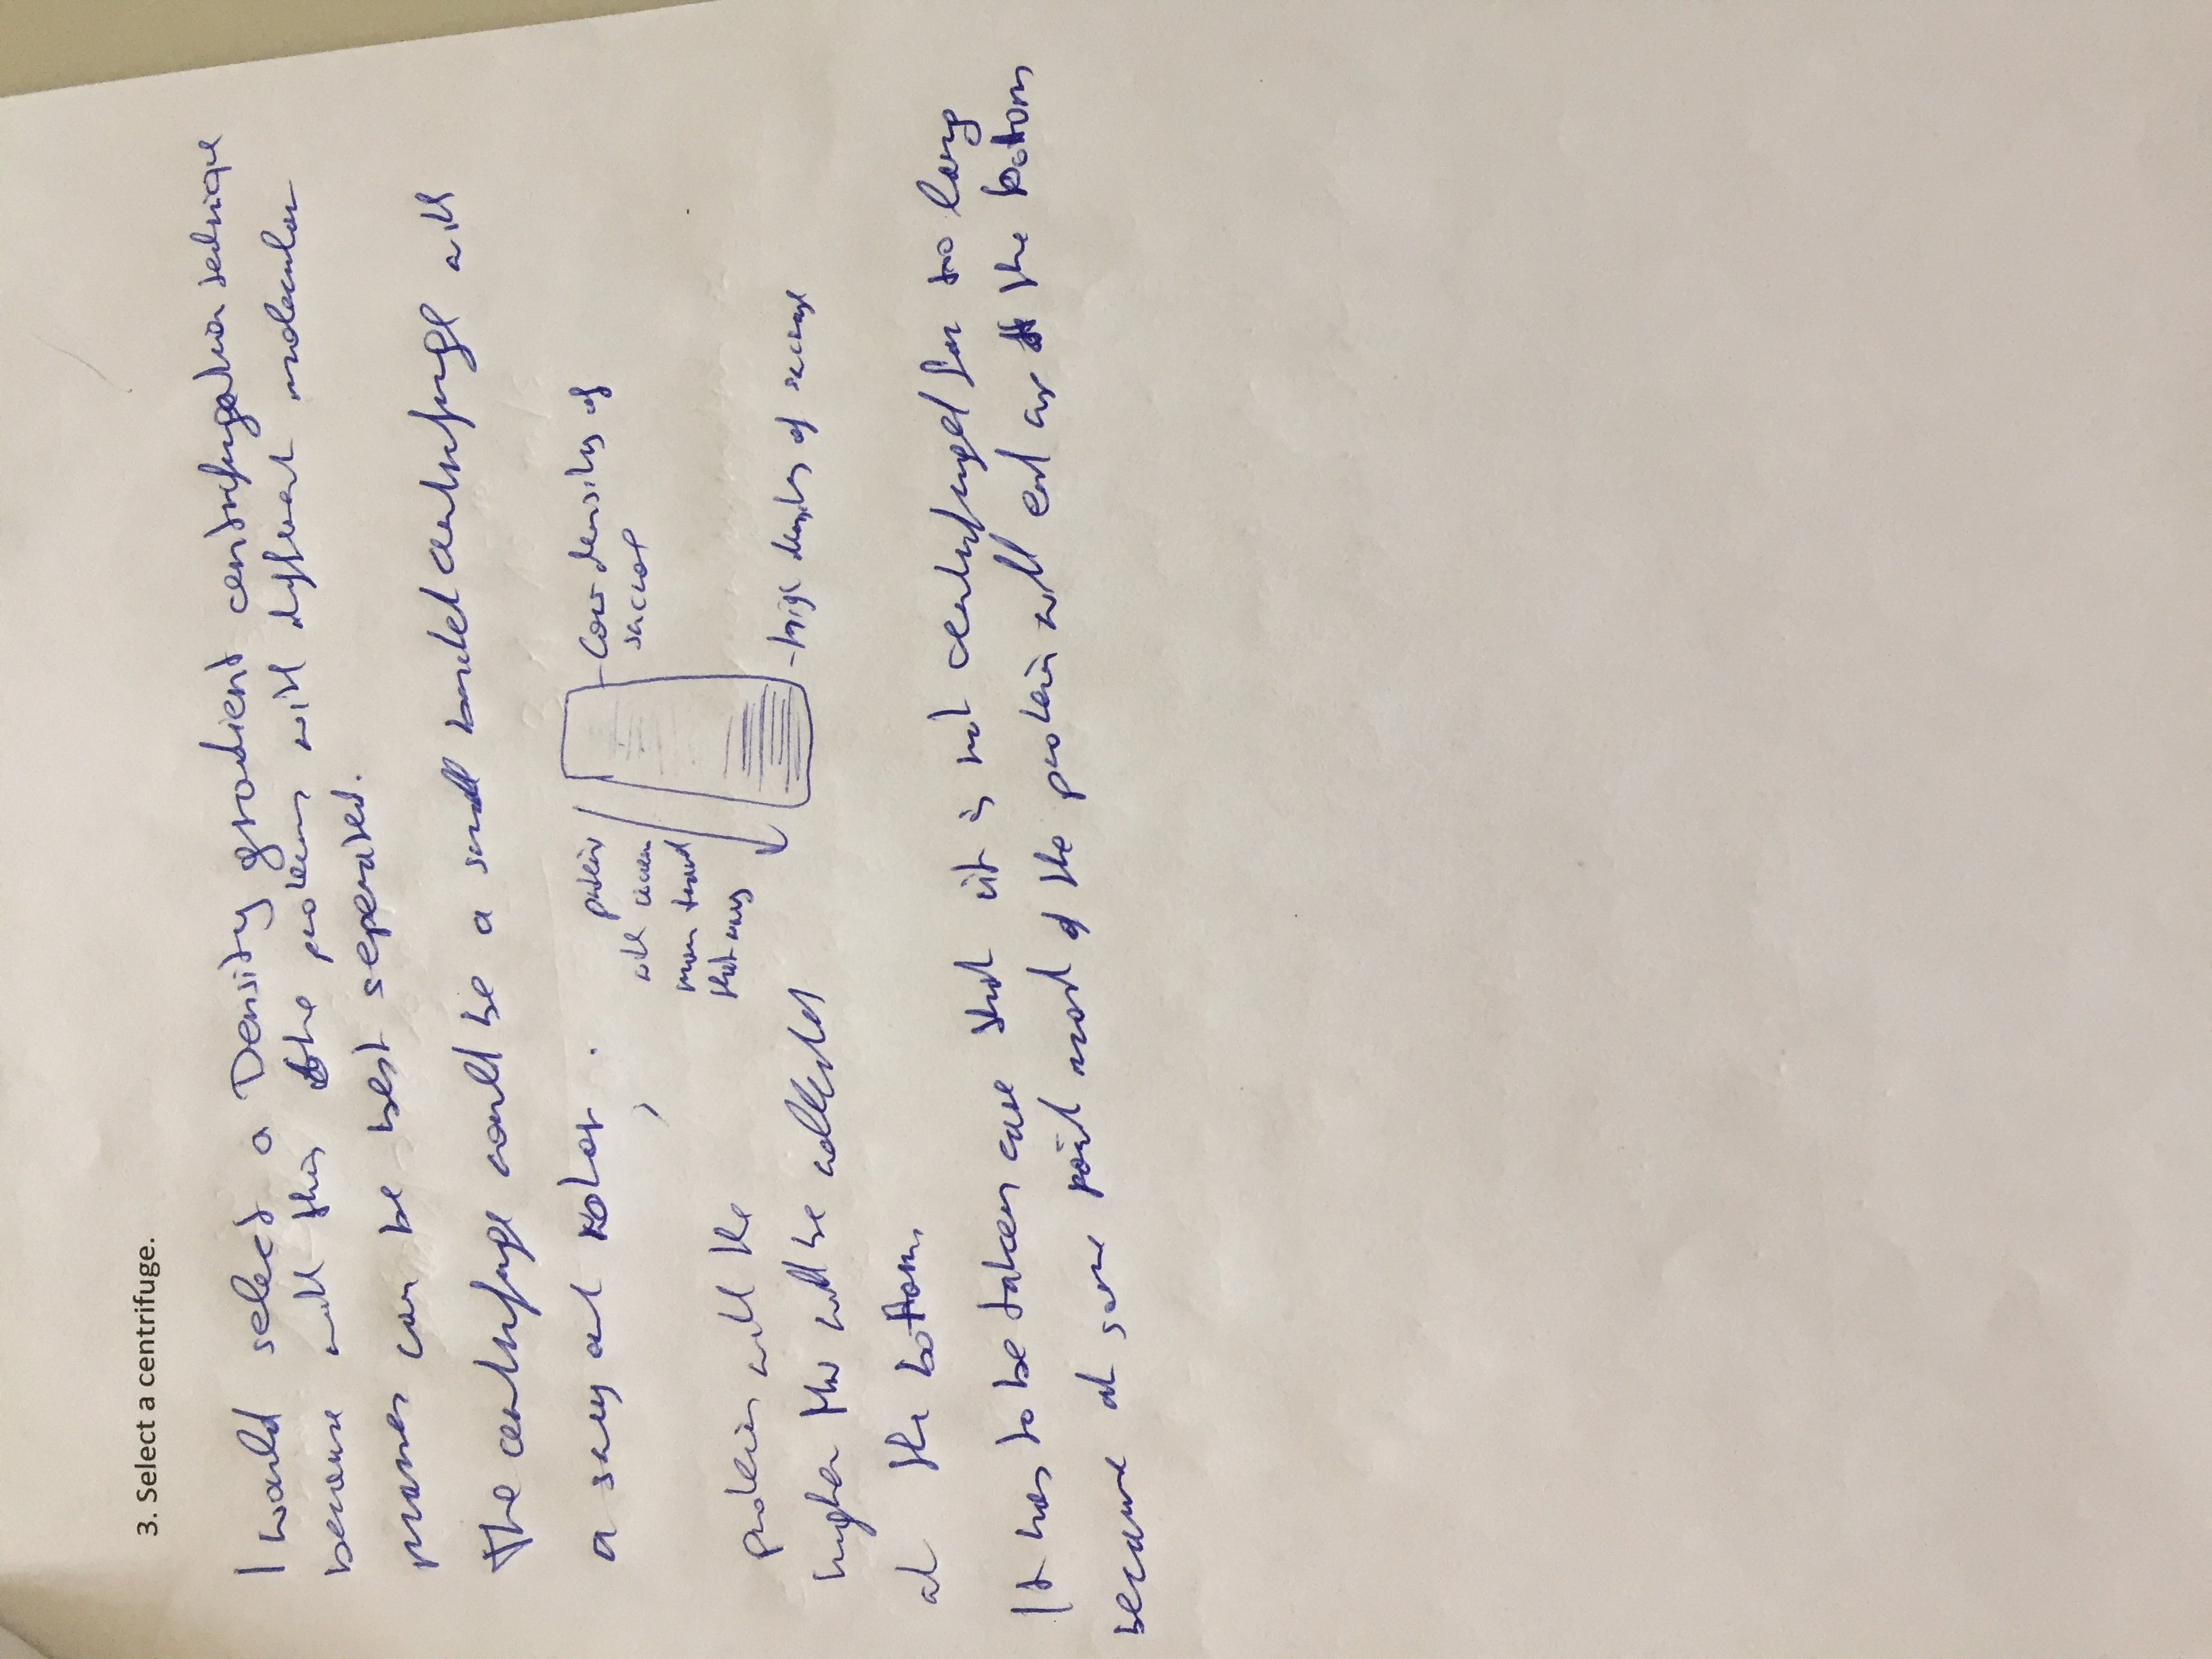 3. Select a centrifuge.
I would select a Density gradient centrifugation technique
because with this the proteins with different molecular
masses can be best seperated.
The centrifuge would be a small bucket centrifuge with
a swing out rotor.
Low density of
sucrose
protein
will
more
that way
high density of sucrose
protein with the
higher MW will be collected
at the bottom.
It has to be taken care that it is not centrifuged for too long
because at some point most of the protein will end up at the bottom